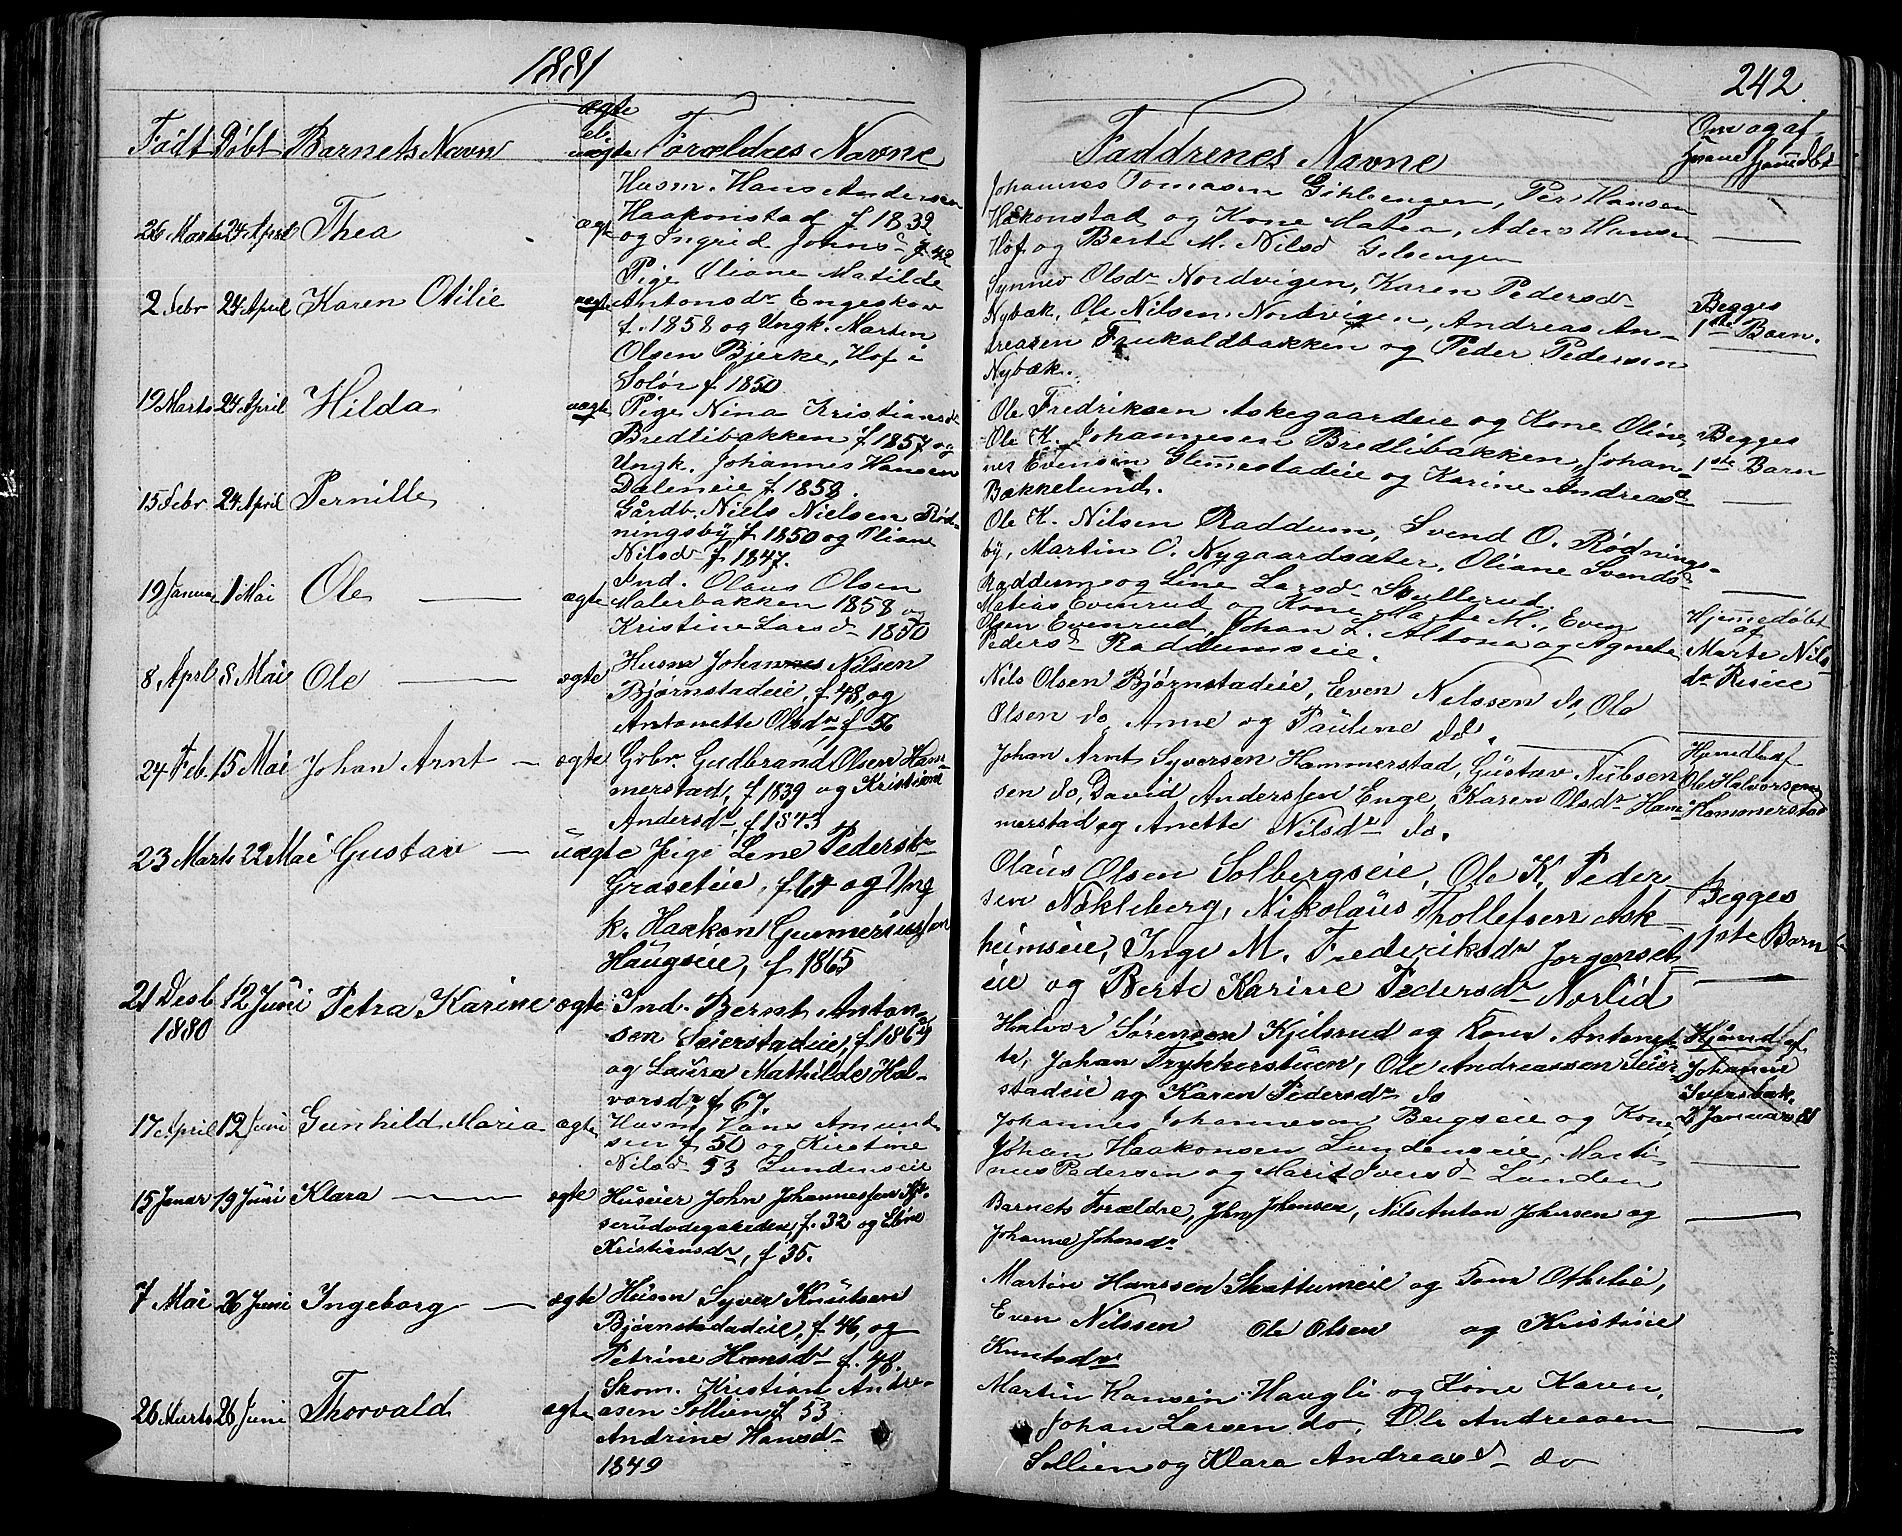 1881
242.
Født Døbt Barnets Navn ægte el. uægte Forældres Navne
Faddrenes Navne
Om og af hjemmedøbt
26 Marts 24 April Thea ægte
Husm. Hans Andersen
Haakonstad f 1832
og Ingrid Johnsd f 42
Johannes Tomasen Gihlengen, Per Hansen
Haakonstad og Kone Matea, Aders Hansen
Hof og Berte M. Nilsd Gilsengen
2 Febr 24 April Karen Otilie uægte
Pige Oliane Matilde
Antonsdr Engeskov
f. 1858 og Ungk. Marten
Olsen Bjerke, Hof i
Solør f 1850
Synnev Olsdr Nordvigen, Karen Pedersdr
Nybæk, Ole Nilsen Nordvigen, Andreas An-
dreasen Frukaldbakken og Peder Pedersen
Nybæk.
Begges
1ste Barn.
19 Marts 24 April Hilda uægte
Pige Nina Kristiansd
Bredlibakken f 1857 og
Ungk. Johannes Hansen
Daleneie f 1858.
Ole Fredriksen Askegaardeie og Kone Oline,
Ole K. Johannesen Bredlibakken, Johan-
nes Evensen Glemmestadeie og Karine Andreasd
Bækkelund.
Begges
1ste Barn
15 Febr 24 April Pernille
Gårdb. Niels Nielsen Rød-
ningsby f 1850 og Oliane
Nilsd f 1847.
Ole K. Nilsen Raddum, Svend O. Rødnings-
by, Martin O. Nygaardsæter, Oliane Svendsd
Raddum og Line Larsd Skullerud
19 Januar 1 Mai Ole ægte
Ind. Olaus Olsen
Malerbakken 1858 og
Kristine Larsd 1850
Matias Evenrud og Kone Marte M., Even
Olsen Evenrud, Johan L. Altona og Agnete
Pedersd Raddumseie.
Hjemmedøbt
af
Marte Nils-
dr Riseie
8 April 8 Mai Ole ægte
Husm Johannes Nilsen
Bjørnstadeie, f 48, og
Antonette Olsdr, f 56
Nils Olsen Bjørnstadeie, Even Nilssen do, Ole
Olsen do Anne og Pauline do.
24 Feb. 15 Mai Johan Arnt ægte
Grbr Gudbrand Olsen Ham-
merstad, f 1839 og Kristiane
Andersdr, f 1843
Johan Arnt Syversen Hammerstad, Gustav Nilsen
sen do, David Anderssen Enge, Karen Olsdr Ham-
merstad og Anette Nilsdr do.
Hjemdb af
Ole Halvorsen
Hammerstad
23 Marts 22 Mai Gustav uægte
Pige Lene Pedersdr
Graseteie, f 64 og Ung
k. Haakon Gunneriussen
Haugseie, f 1865
Olaus Olsen Solbergseie, Ole K. Peder-
sen Nøkleberg, Nikolaus Thollefsen Ask-
heimseie, Inge M. Frederiksdr Jørgenset
eie og Berte Karine Pedersdr Norlid
Begges
1ste Barn
21 Desb 12 Juni Petra Karine ægte
1880
Ind. Bernt Anton-
sen Seierstadeie, f. 1864
og Laura Mathilde Hal-
vorsdr, f 67.
Halvor Sørensen Kjilsrud og Kone Antonet-
te, Johan Trykkerstuen, Ole Andreassen Seier-
stadeie og Karen Pedersdr do
Hjemd. af
Johanne
Iversbak.
2 Januar 81
17 April 12 Juni Gunhild Maria ægte
Husm Hans Amund
sen f 50 og Kirstine
Nilsd 53 Lundenseie
Johannes Johannesen Bergseie og Kone,
Johan Haakonsen Lundenseie, Marti-
nus Pedersen og Marit Iversd Lunden
15 Januar 19 Juni Klara ægte
Huseier John Johannessen Kjl-
serudodegaarden, f. 32 og Eline
Kristiansdr, f 35.
Barnets Forældre, John Johnsen, Nils Anton Johnsen og
Johanne Johnsdr
7 Mai 26 Juni Ingeborg ægte
Husm Syver Knutsen
Bjørnstadeie, f 46, og
Petrine Hansdr f. 48.
Martin Hanssen Skattumeie og Kone Othelie,
Even Nilssen Ole Olsen og Kristine
Knutsdr
26 Marts 26 Juni Thorvald ægte
Skom. Kristian Andre-
asen Sollien f 53
Andrine Hansd
1849
Martin Hansen Haugli og Kone Karen,
Johan Larsen do, Ole Andreasen
Sollien og Klara Andreasd do